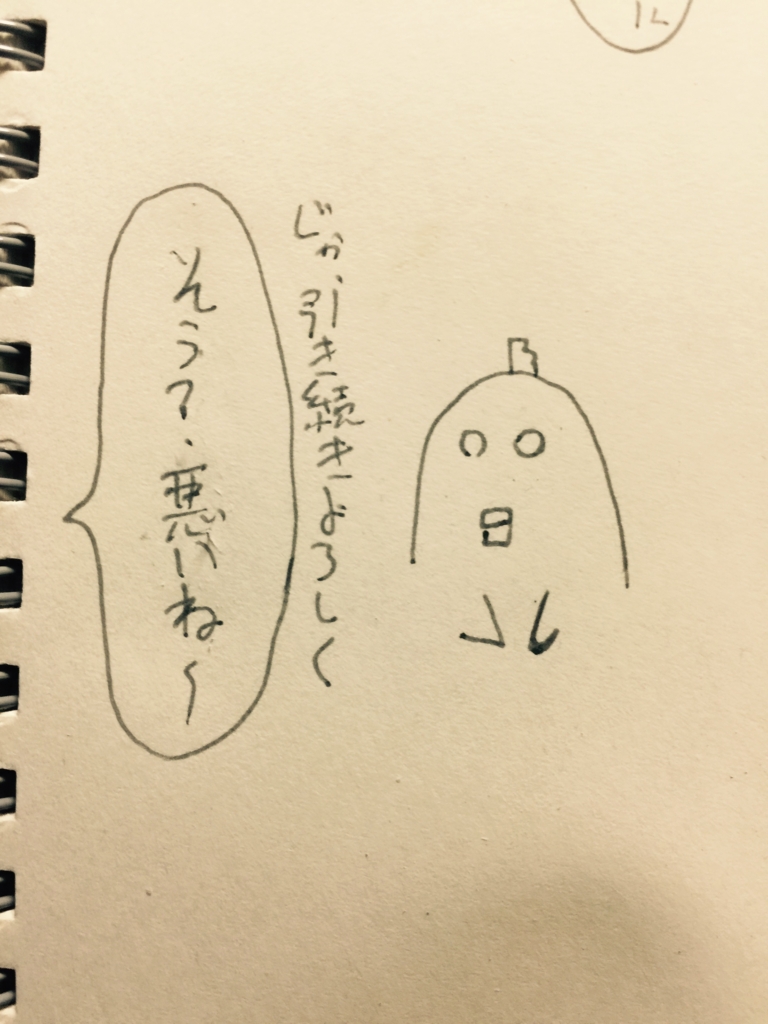 じゃ、引き続きよろしく
そう？、悪いね〜